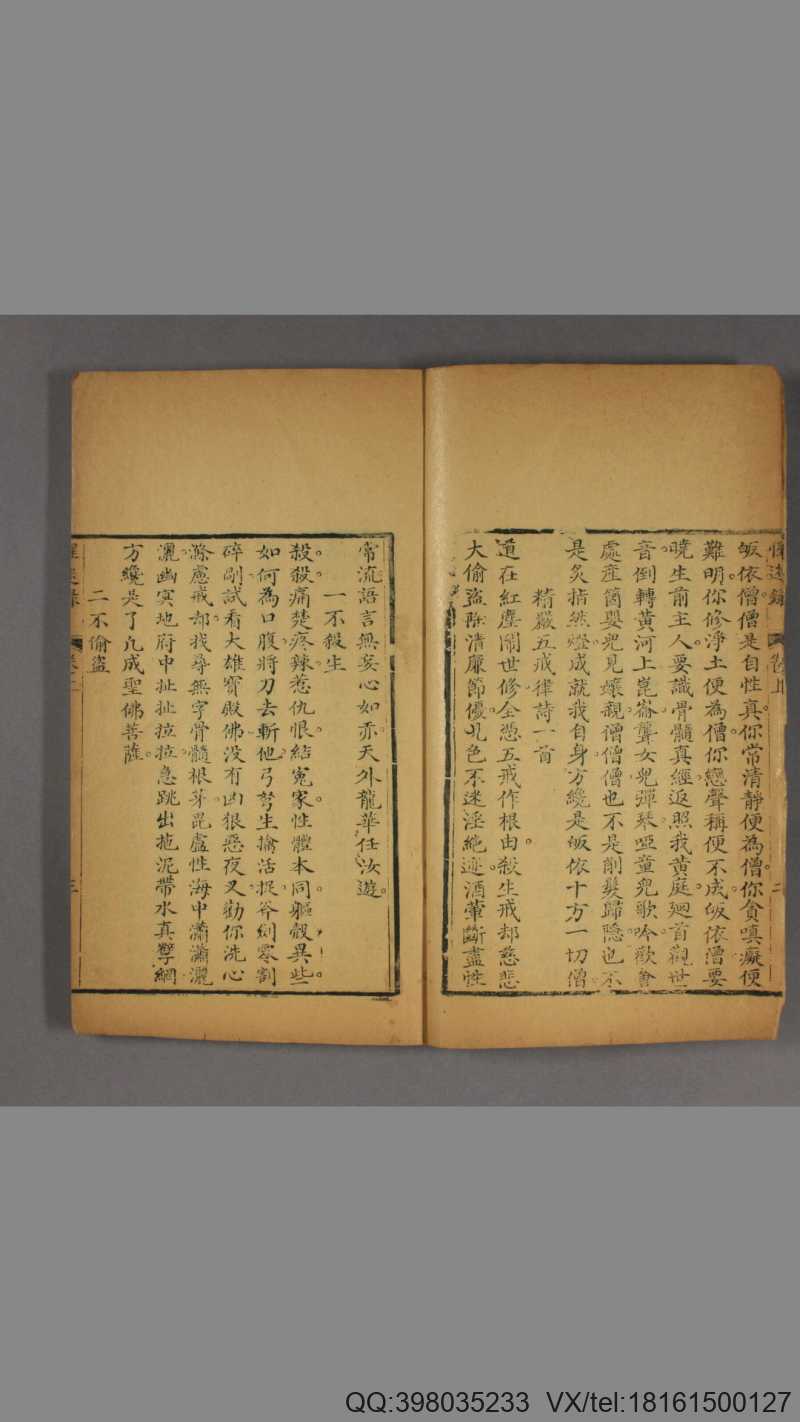 皈依僧僧是自性真你常清靜便為僧你貪嗔癡便
難明你修淨土便為僧你戀聲稱便不成皈依僧要
曉生前主人要識骨髓真經返照我黃庭廻首觀世
音倒轉黃河上崑崙聾女兒彈琴啞童兒歌吟歡會
處產箇嬰兒見孃親僧僧僧也不是削髮歸隱也不
是炙指然燈成就我自身方纔是皈依十方一切僧
精嚴五戒律詩一首
道在紅塵鬧世修全憑五戒作根由殺生戒却慈悲
大偷盜除清廉節優凡色不迷淫絕迹酒葷斷盡性
常流語言無妄心如赤天外龍華任汝遊
一不殺生
殺殺痛楚疼辣惹仇恨結冤家性體本同軀殼異些
如何為口腹將刀去斬他弓弩生擒活捉斧刴零割
碎剮試看大雄寶殿佛没有凶狠惡夜叉勸你洗心
滌慮戒却找尋無字骨髓根芽毘盧性海中瀟瀟灑
灑幽冥地府中扯扯拉拉急跳出拖泥帶水真孽網
方纔是了凡成聖佛菩薩
二不偷盜
三
QQ:398035233 VX/tel:18161500127